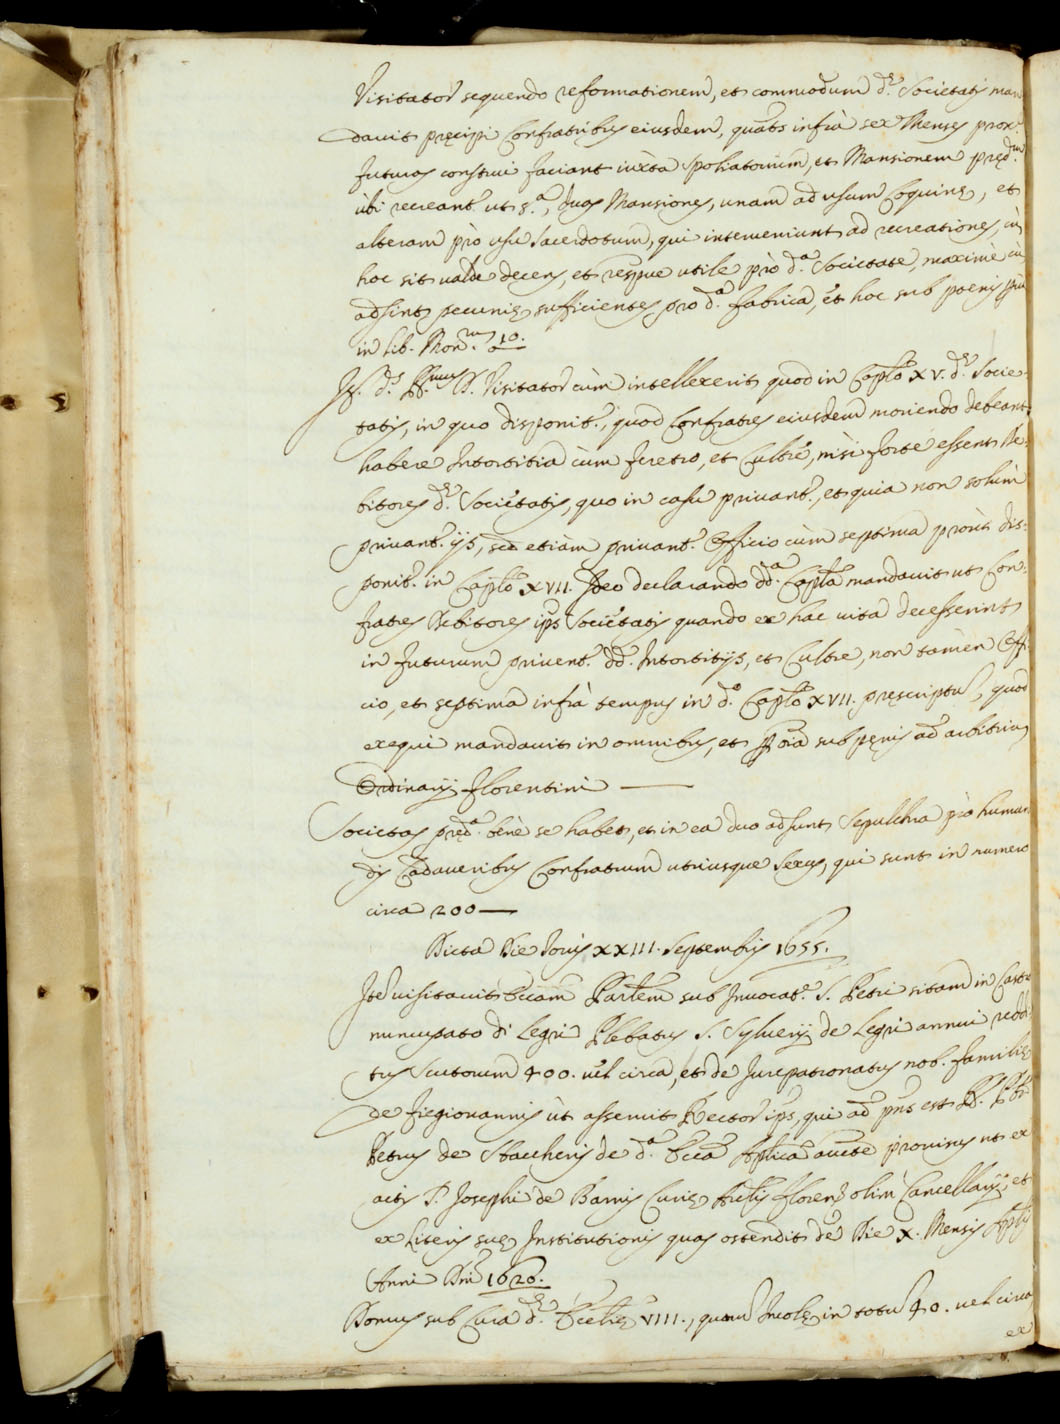 Visitator sequendo reformationem, et commodum d.ę Societatis man
davit pręcipi Confratribus eiusdem, quats infrà sex Menses prox.
futuros construi faciant iuxta Spoliatorium, et Mansionem pręd.m
ubi recreant.r ut s.a, duas Mansiones, unam ad usum Coquinę, et
alteram prò usu Sacerdotum, qui interveniunt ad recreationes, cù
hoc sit valde decens, et utile prò d.a Societate, maximè cù
adsint pecunię sufficientes pro d.a fabrica, et hoc sub poenis
in lib. Mon.m 10.
Visitator cùm intellexerit quod in Caplo XV. d.ę Socie-
tatis, in quo disponit.r, quod Confratres eiusdem moriendo debeant
habere Intortitia cùm feretro, et Cultre, nisi fortè essent De-
bitores d.ę Societatis, quo in casu privant.r, et quia non solùm
privant.r ijs, sed etiàm privant.r Officio cùm septima proùt dis-
ponit.r in Caplo XVII. Ideo declarando dd.a Capla mandavit ut Con-
fratres Debitores ips Societatis quando ex hac vita decesserint
in futurum privent.r dd. Intortitijs, et Cultre, non tamèn Offi
cio, et septima infrà tempus in d.o Caplo XVII. pręscriptu, quod
exequi mandavit in omnibus, et sub pęnis ad arbitriu
Ordinarij Florentini —
Societas pręd.a benè se habet, et in ea duo adsunt Sepulchra prò human
dis Cadaveribus Confratrum utriusque Sexus, qui sunt in numero
circa 200 —
Dicta Die Iovis XXIII. Septembris 1655.
Ite visitavit Ecciam Parlem sub Invocat.e S. Petri sitam in Castro
nuncupato di Legri Plebatus S. Sylverij de Legri annui reddi
tus Scutorum 400. vel circa, et de Jurepatronatus nob. familię
de Figiovannis ùt asseruit Rector ips, qui ad pns est
Petrus de Staccheris de d.a Eccia Aplica aucte provisus ut ex
actis S. Josephi de Barnis Curię Archlis Floren olim Cancellarij, et
ex Literis suę Institutionis quas ostendit de Die X. Mensis Aplis
Anni Dni 1620.
Domus sub Cura d.ę Eccletię VIIII., quaru Incolę in totu 40. vel circa,
ex